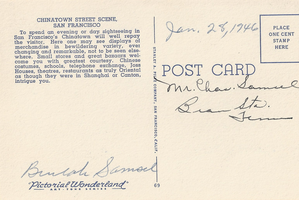 CHINATOWN STREET SCENE,
SAN FRANCISCO
To spend an evening or day sightseeing in
San Francisco's Chinatown will well repay
the visitor. Here one may see displays of
merchandise in bewildering variety, ever
changing and remarkable, not to be seen else-
where. Small stores and great bazaars wel-
come you with greatest courtesy. Chinese
costumes, schools, telephone exchange, Joss
Houses, theatres, restaurants as truly Oriental
as though they were in Shanghai or Canton,
intrigue you.
Beulah Samuel
Pictorial Wonderland
69
Jan. 28, 1946
PLACE
ONE CENT
STAMP
HERE
POST CARD
Mr. Chas. Samuel
Sta.
Tenn